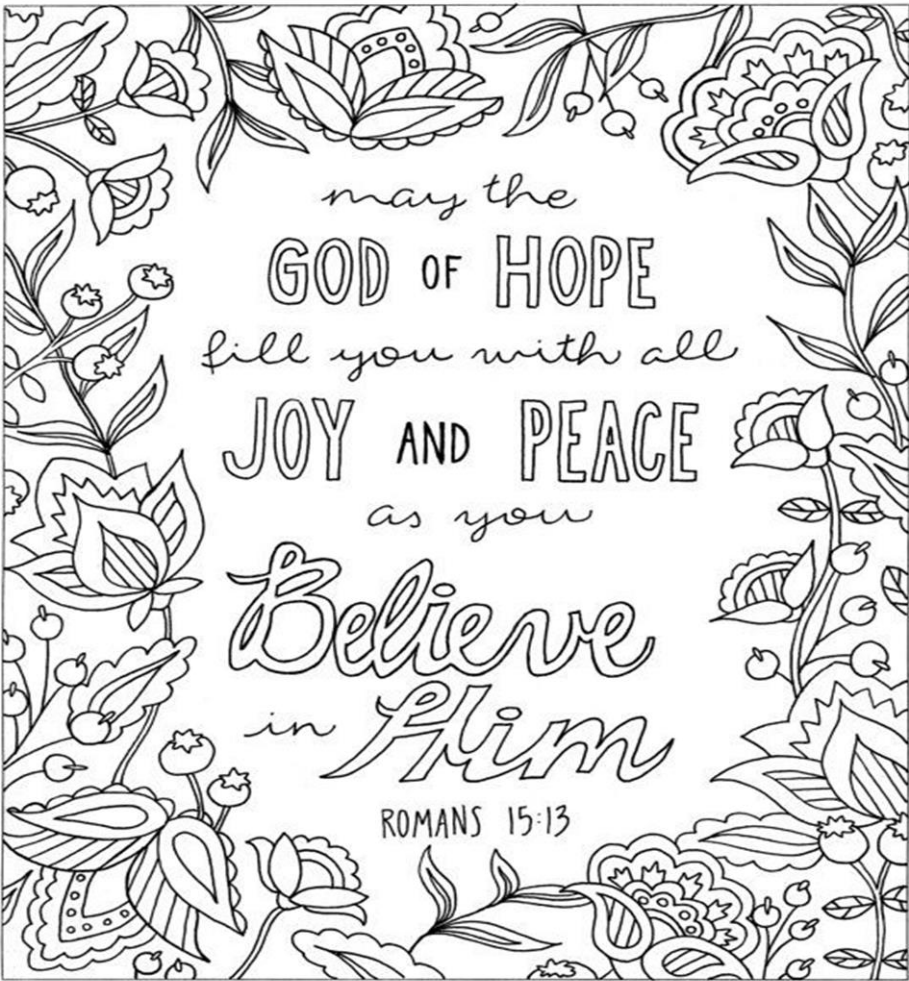 may the
GOD OF HOPE
fill you with all
JOY AND PEACE
as you
Believe
in Him
ROMANS 15:13